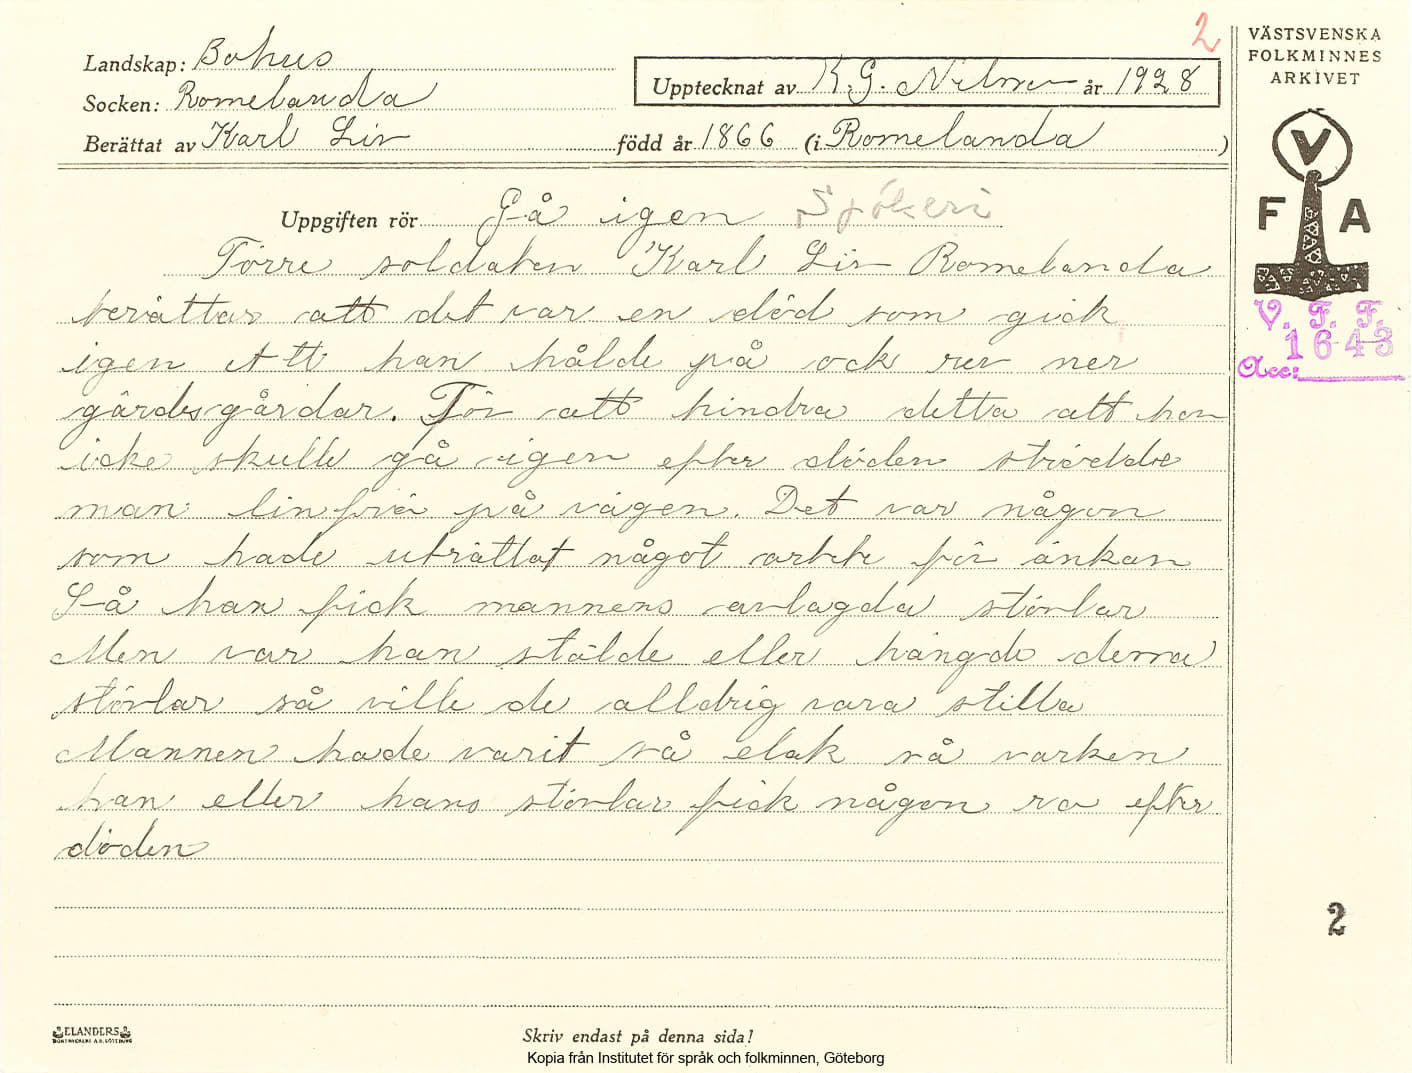 2
VÄSTSVENSKA
FOLKMINNES
ARKIVET
Landskap: Bohus
Upptecknat av K. G. Nilson år 1928
Socken: Romelanda
Berättat av Karl Liv född år 1866 (i Romelanda)
V
F A
Uppgiften rör Gå igen Spökeri
Förre soldaten Karl Liv Romelanda
berättar att det var en död som gick
igen Att han hålde på ock rev ner
gärdsgårdar. För att hindra detta att han
icke skulle gå igen efter döden strödde
man linfrö på vägen. Det var någon
som hade uträttat något arbete för änkan
Så han fick mannens avlagda stövlar
Men var han stälde eller hängde dessa
stövlar så ville de alldrig vara stilla
Mannen hade varit så elak så varken
han eller hans stövlar fick någon ro efter
döden
V. F. F.
1643
Acc:
2
ELANDERS
BOKTRYCKERI A.B. GÖTEBORG
Skriv endast på denna sida!
Kopia från Institutet för språk och folkminnen, Göteborg